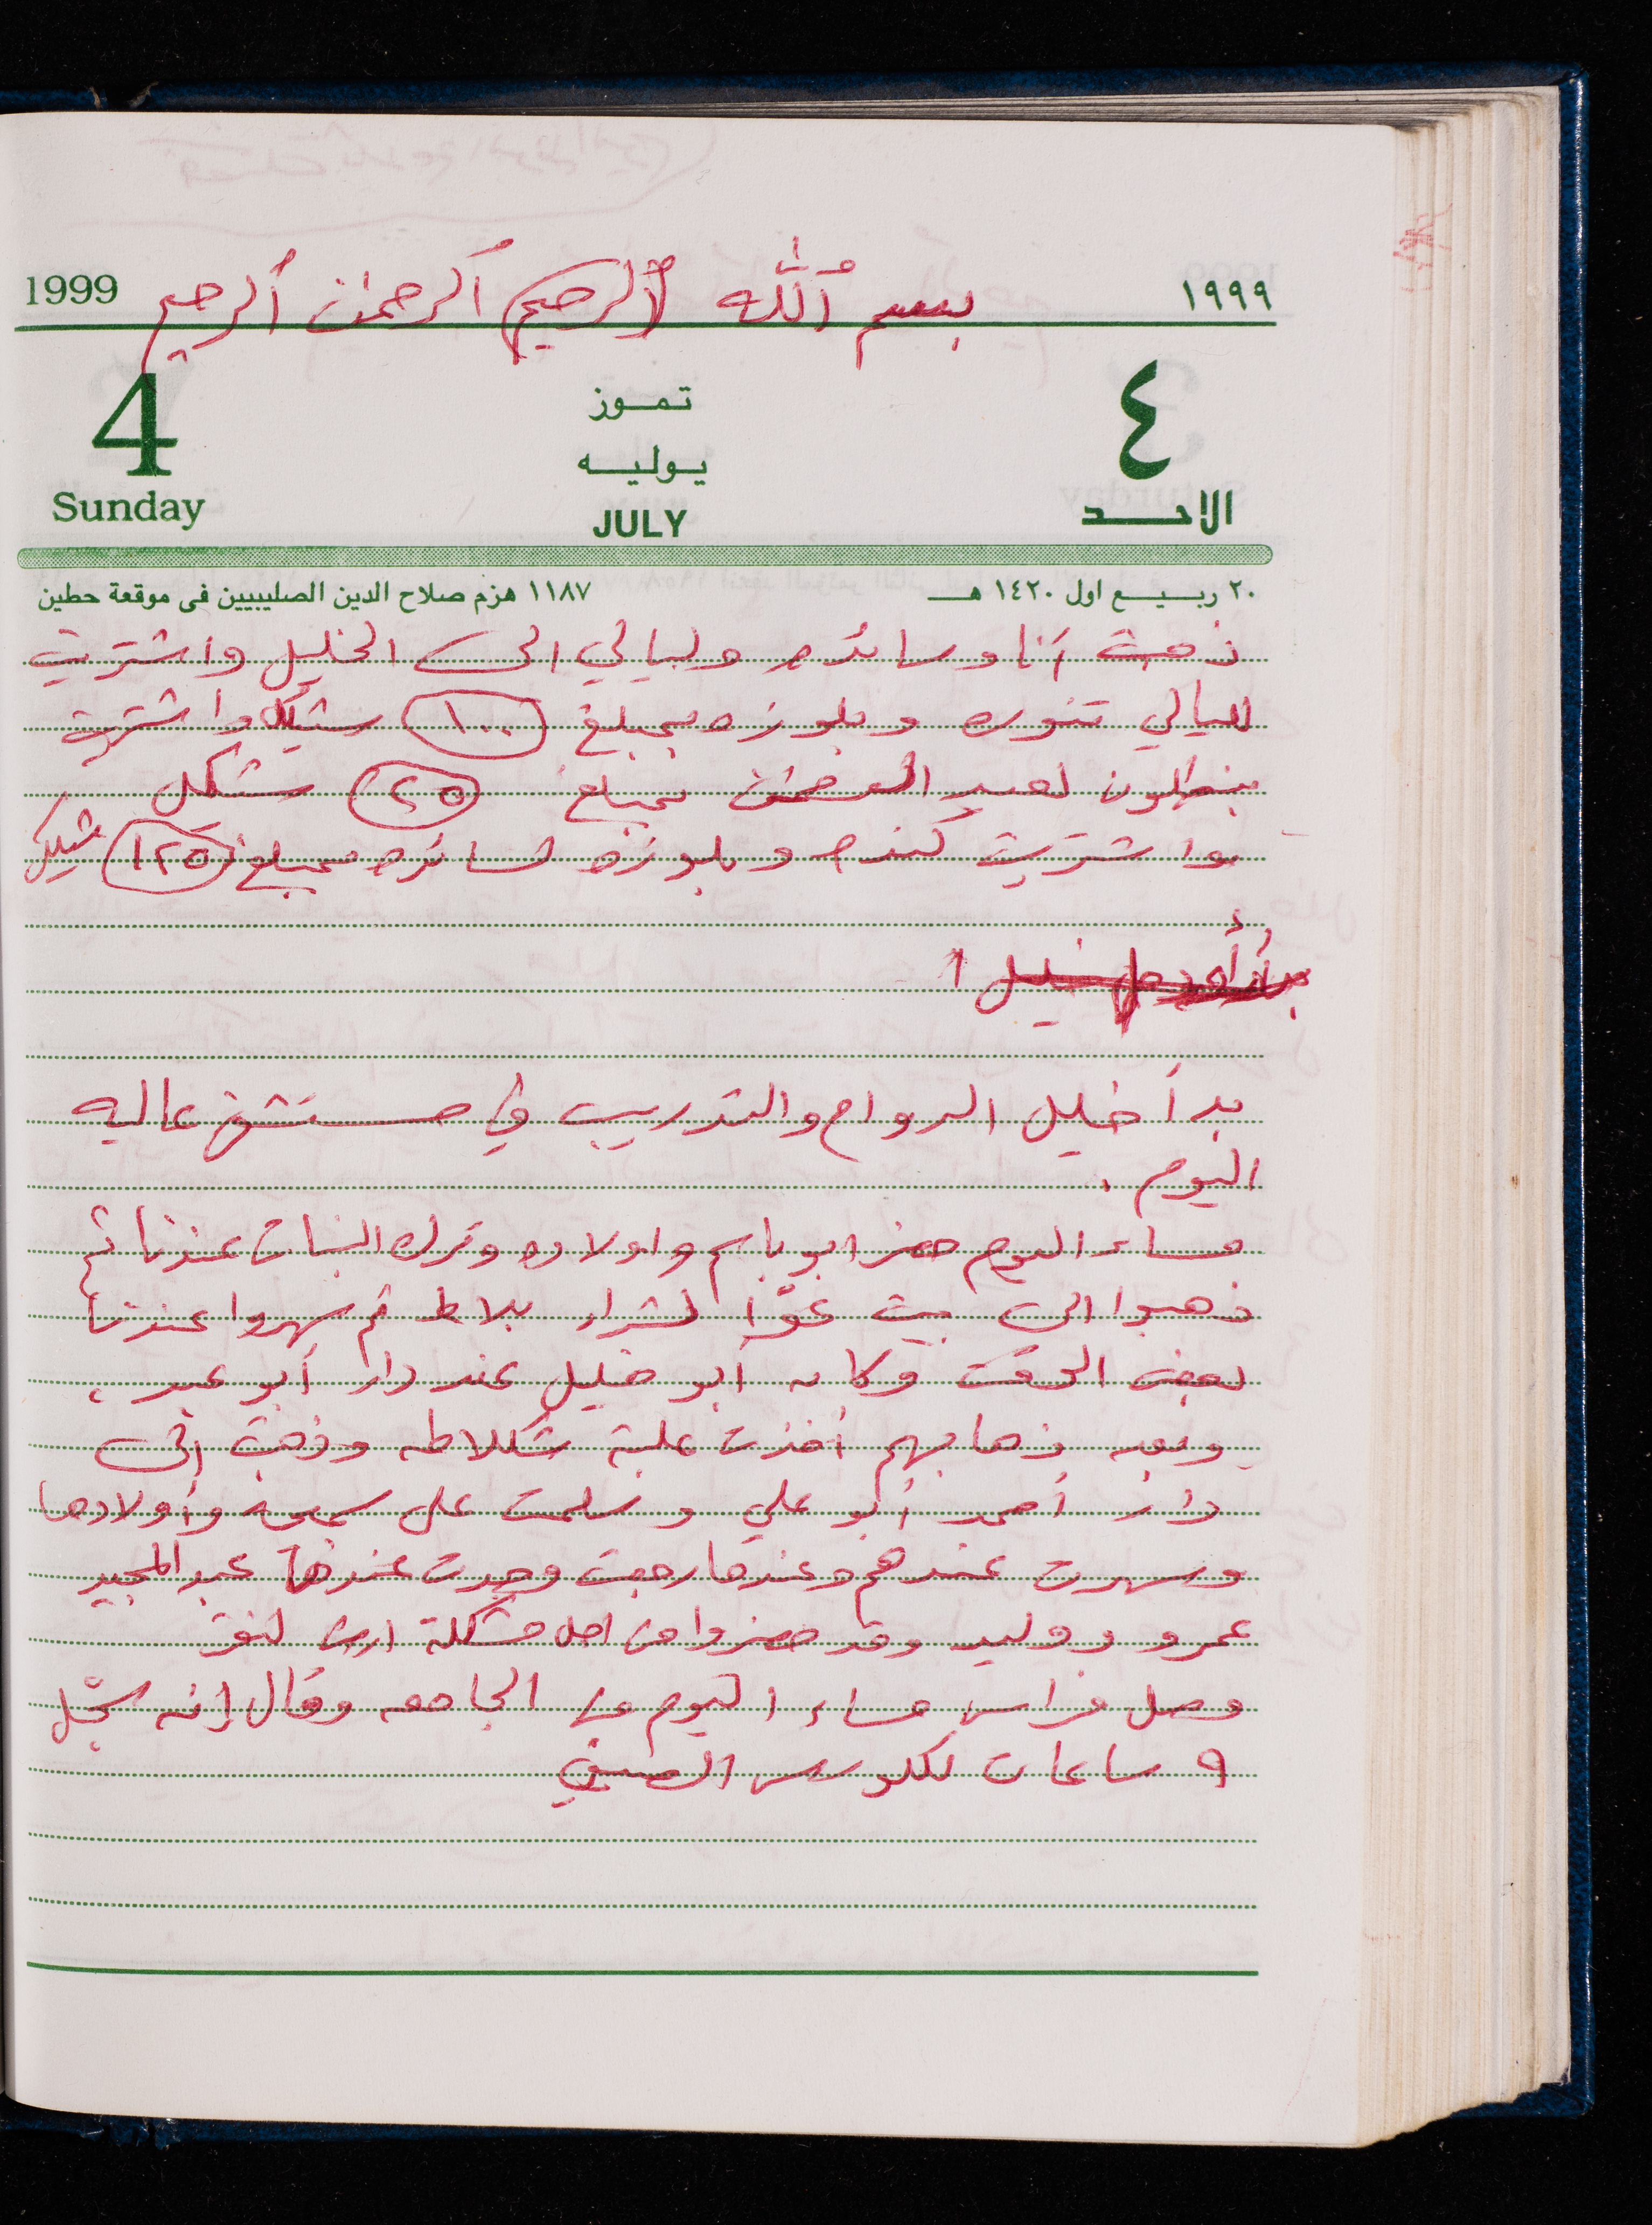 بسم الله (الرحيم) الرحمن الرحيم
1999 ١٩٩٩
4 تموز ٤
يوليه
Sunday JULY الاحد
٢٠ ربيع اول ١٤٢٠ هـ ١١٨٧ هزم صلاح الدين الصليبيين فى موقعة حطين
ذهبت أنا وسائده وليالي الى الخليل واشتريت
لليالي تنوره وبلوزه بمبلغ ١٠٠ شيكل واشتريت
بنطلون لعبد بمبلغ ٢٥ شيكل
واشتريت كندره وبلوزه لسائده بمبلغ ١٢٥ شيكل
خليل
بدأ خليل الدوام والتدريب في مستشفى عاليه
اليوم .
مساء اليوم حضر ابو باسم واولاده وترك البنات عندنا ثم
ذهبوا الى بيت عوّا لشراء بلاط ثم سهروا عندنا
بعض الوقت وكان أبو خليل عند دار أبو عبد ،
وبعد ذهابهم أخذت علبة شكلاطه وذهبت إلى
دار أحمد أبو علي وسلمت على سميحة وأولادها
وسهرت عندهم وعندما رجعت وجدت عندنا عبد المجيد
عمرو ووليد وقد حضروا من اجل مشكلة ارض
وصل فراس مساء اليوم من الجامعه وقال إنه سجّل
٩ ساعات للكورس الصيفي